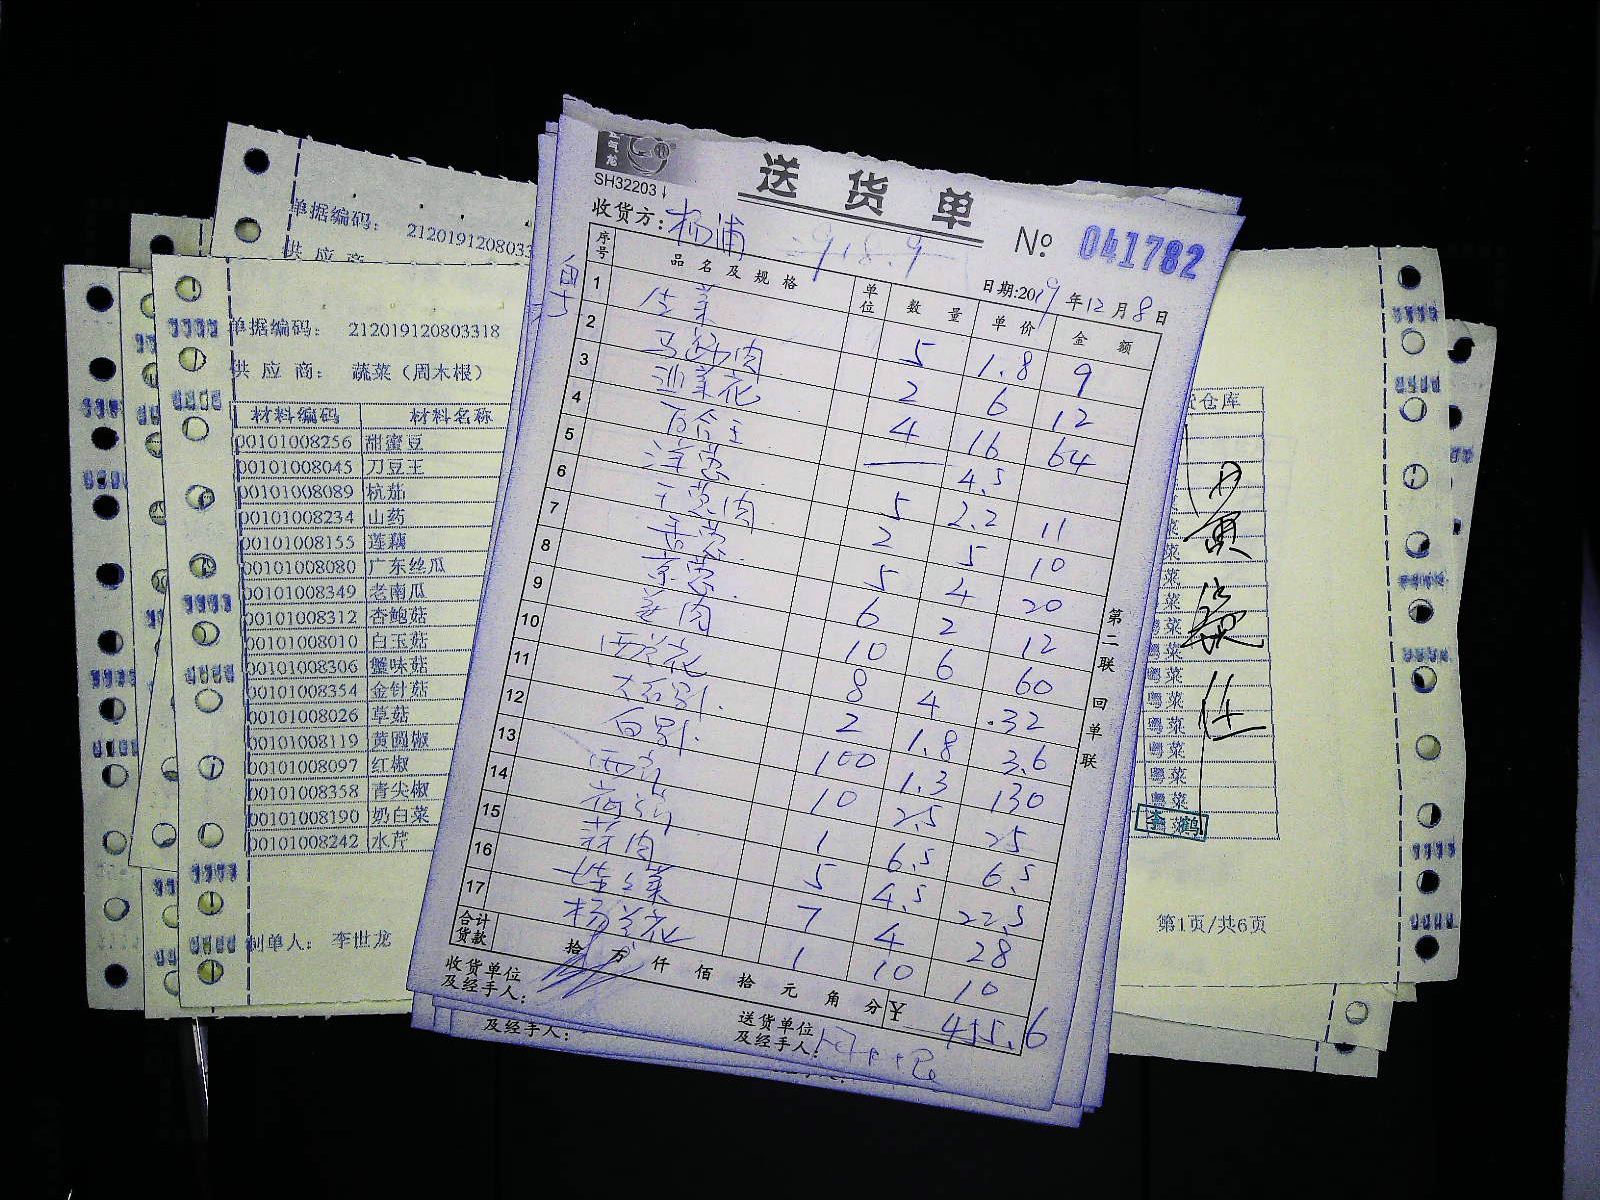 单据编码： 2120191208033
供 应 商
单据编码： 212019120803318
供 应 商： 蔬菜（周木根）
材料编码 材料名称
00101008256 甜蜜豆
00101008045 刀豆王
00101008089 杭茄
00101008234 山药
00101008155 莲藕
00101008080 广东丝瓜
00101008349 老南瓜
00101008312 杏鲍菇
00101008010 白玉菇
00101008306 蟹味菇
00101008354 金针菇
00101008026 草菇
00101008119 黄圆椒
00101008097 红椒
00101008358 青尖椒
00101008190 奶白菜
00101008242 水芹
制单人： 李世龙
SH32203
送货单
收货方：杨浦
№ 041782
日期:2019年12月8日
序号 品名及规格 单位 数量 单价 金额
1 生菜 5 1.8 9
2 马蹄肉 2 6 12
3 沙菜花 4 16 64
4 4.5
5 洋葱 5 2.2 11
6 2 5 10
7 5 4 20
8 京葱 6 2 12
9 姜肉 10 6 60
10 西兰花 8 4 32
11 2 1.8 3.6
12 100 1.3 130
13 西芹 10 2.5 25
14 1 6.5 6.5
15 蒜肉 5 4.5 22.5
16 7 4 28
17 杨兰花 1 10 10
合计货款 拾 万 仟 佰 拾 元 角 分 ¥ 455.6
收货单位及经手人：
送货单位及经手人：
及经手人：
第二联 回单联
仓库
菜
菜
菜
菜
粤菜
粤菜
粤菜
粤菜
粤菜
粤菜
粤菜
粤菜
第1页/共6页